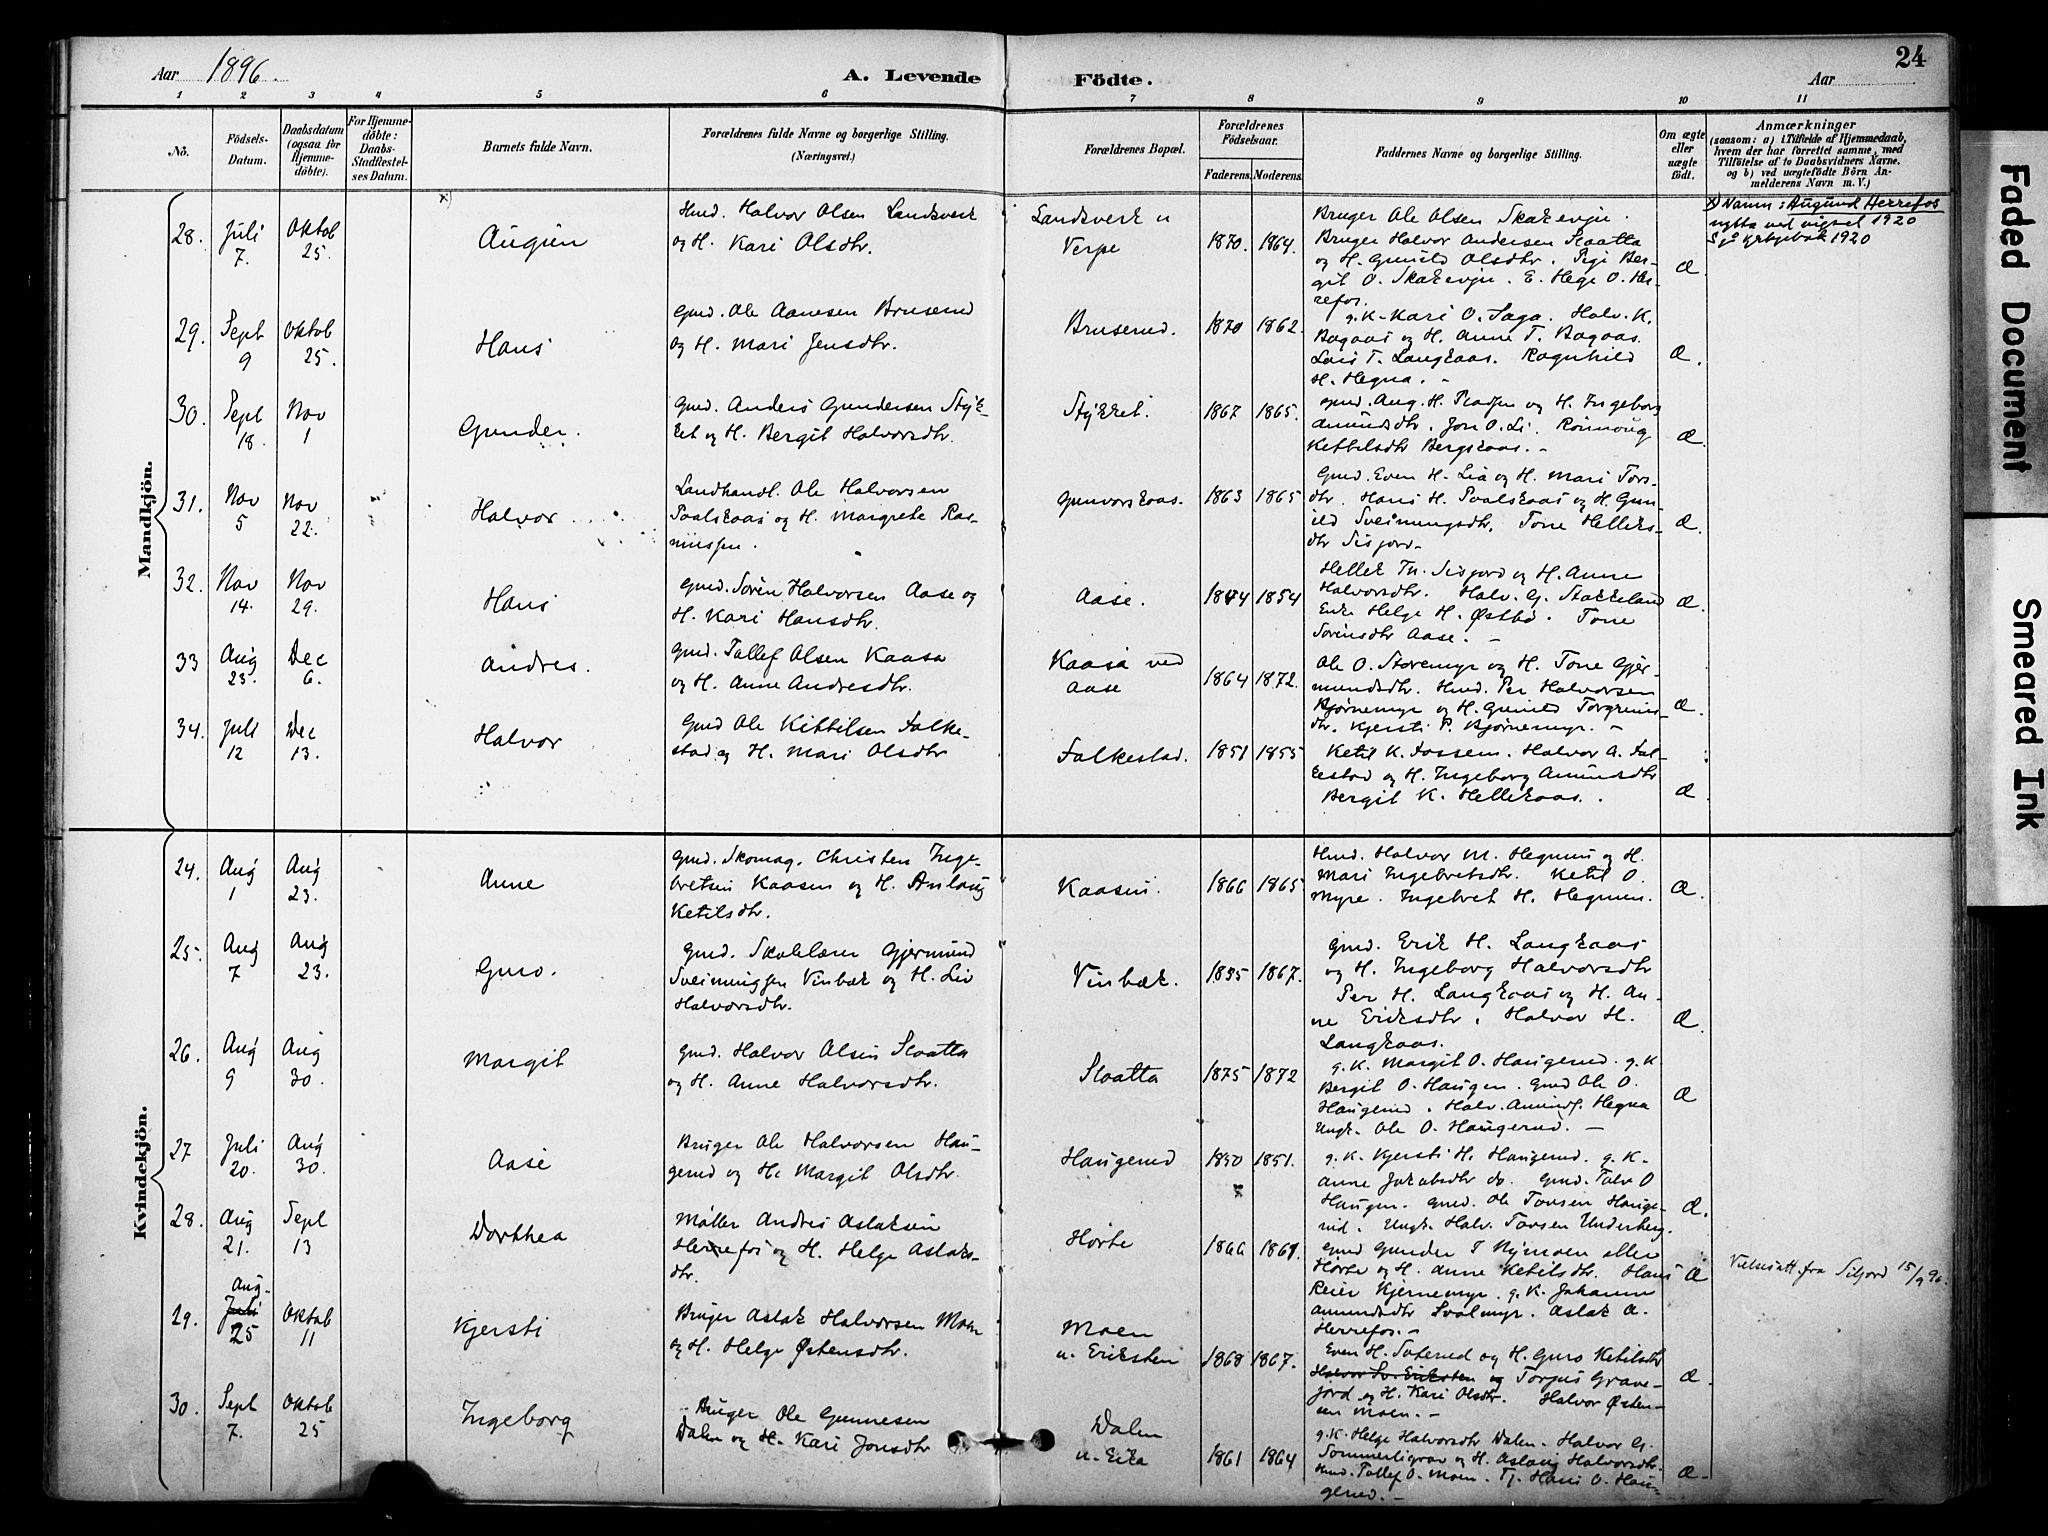 24
Aar 1896. A. Levende Födte. Aar
1 2 3 4 5 6 7 8 9 10 11
No.
Födsels-Datum.
Daabsdatum (ogsaa for Hjemmedöbte).
For Hjemmedöbte: Daabs-Stadfæstelses Datum.
Barnets fulde Navn.
Forældrenes fulde Navne og borgerlige Stilling. (Næringsvei.)
Forældrenes Bopæl.
Forældrenes Födselsaar.
Faderens. Moderens.
Faddernes Navne og borgerlige Stilling.
Om ægte eller uægte födt.
Anmærkninger
(saasom: a) i Tilfælde af Hjemmedaab, hvem der har forrettet samme, med Tilföielse af to Daabsvidners Navne, og b) ved uægtefödte Börn Anmelderens Navn m. V.)
Mandkjön.
28. Juli 7. Oktob 25. x) Augun
Hmd. Halvor Olsen Landsverk
og H. Kari Olsdtr.
Landsverk u Verpe
1870. 1864.
Bruger Ole Olsen Skakevju.
Bruger Halvor Andersen Slaatta
og H. Gunild Olsdtr. Pige Ber-
git O. Skakevju. E. Hege O. Her-
refos.
Æ.
x) Namn: Augund Herrefos
nytta ved vigsel 1920
Sjå kyrkjebok 1920
29. Sept 9 Oktob 25. Hans
Gmd. Ole Aanesen Bruserud
og H. Mari Jensdtr.
Bruserud. 1870 1862.
g.K. Kari O. Saga. Halv. K.
Bagaas og H. Anne T. Bagaas.
Lars T. Langkaas. Ragnhild
H. Hegna. -
Æ.
30. Sept 18. Nov 1 Gunder.
Gmd. Anders Gundersen Styk-
ket og H. Bergit Halvorsdtr.
Stykket. 1867 1865.
Gmd. Aug. H. Pladsen og H. Ingeborg
Amundsdtr. Jon O. Li. Rönnoug
Kettilsdtr Bergskaas. -
Æ.
31. Nov 5 Nov 22. Halvor
Landhandl. Ole Halvorsen
Paalskaas og H. Margrete Ras-
mussen.
Gunvorskaas. 1863 1865
Gmd. Even H. Lia og H. Mari Tors-
dtr. Hans H. Paalskaas og H. Gun-
ild Sveinungsdtr. Tone Helleks-
dtr Sisjord -
Æ.
32. Nov 14. Nov 29. Hans
Gmd. Sören Halvorsen Aase og
H. Kari Hansdtr.
Aase. 1854
Hellek Th. Sisjord og H. Anne
Halvorsdtr. Halv. G. Stakkeland
Enke Helge H. Østbö. Tone
Sörensdtr Aase. -
Æ.
33 Aug 23. Dec 6. Andres.
Gmd. Tallef Olsen Kaasa
og H. Anne Andresdtr.
Kaasa ved Aase 1864 1872.
Ole O. Storemyr og H. Tone Gjer-
mundsdtr. Hmd. Per Halvorsen
Bjørnemyr og H. Gunild Torgrims-
dtr. Kjersti P. Bjørnemyr. -
Æ.
34. Juli 12 Dec 13. Halvor
Gmd Ole Kittilsen Falke-
stad og H. Mari Olsdtr
Falkestad. 1851 1855
Ketil K. Fossem. Halvor A. Fal-
kestad og H. Ingeborg Amundsdtr
Bergit K. Hellekaas.
Æ
Kvindekjön.
24. Aug 1 Aug 23. Anne
Gmd. Skomag. Christen Inge-
bretsen Kaasen og H. Anlaug
Ketilsdtr.
Kaasen. 1866 1865
Hmd. Halvor M. Hegnun og H.
Mari Ingebretsdtr. Ketil O.
Myre. Ingebret H. Hegnun.
Æ.
25. Aug 7 Aug 23. Guro.
Gmd. Skolelærer Gjermund
Sveinungsen Vinbæk og H. Liv
Halvorsdtr.
Vinbæk. 1855 1867.
Gmd. Erik H. Langkaas
og H. Ingeborg Halvorsdtr
Per H. Langkaas og H. An-
ne Eriksdtr. Halvor H.
Langkaas.
Æ.
26. Aug 9 Aug 30. Margit
Gmd. Halvor Olsen Slaatta
og H. Anne Halvorsdtr.
Slaatta 1875 1872
g.K. Margit O. Haugerud. g.K
Bergit O. Haugen. Gmd Ole O.
Haugerud. Halv. Amunds. Hegna
Ungk. Ole O. Haugerud. -
Æ
27 Juli 20. Aug 30. Aase
Bruger Ole Halvorsen Hau-
gerud og H. Margit Olsdtr.
Haugerud 1850 1851.
g.K. Kjersti H. Haugerud. g.K.
Anne Jakobsdtr do. Gmd. Talv O
Haugen. Gmd. Ole Tovsen Hauge-
rud. Ungk. Halv. Tovsen Underberg.
Æ.
28. Aug 21. Sept 13 Dorthea
Møller Andres Aslaksen
Herrefos og H. Helge Aslaks-
dtr.
Hørte 1866 1861.
Gmd Gunder T Nymoen eller
Hørte og H. Anne Ketilsdtr. Hans
Reier Kjernemyr. g.K. Johanne
Amundsdtr Svolmyr. Aslak A.
Herrefos. -
Æ
fra Siljord 15/9 96.
29. Aug. Juli 25 Oktob 11 Kjersti
Bruger Aslak Halvorsen Moen
og H. Helge Østensdtr.
Moen u. Eriksten 1868 1867.
Even H. Saterud og H. Guro Ketilsdtr
Halvor Sv. Eriksten og Torjus Grave-
jord og H. Kari Olsdtr. Halvor Østen-
sen Moen. -
Æ.
30. Sept 7. Oktob 25 Ingeborg
Bruger Ole Gunnesen
Dalen og H. Kari Jonsdtr
Dalen u. Eika 1861 1864
g.K. Helge Halvorsdtr Dalen. Halvor G.
Sommerligrav og H. Aslaug Halvorsdtr.
Hmd. Tallef O. Moen. Tj. Hans O. Hau-
gerud. -
Æ.
Faded Document
Smeared Ink